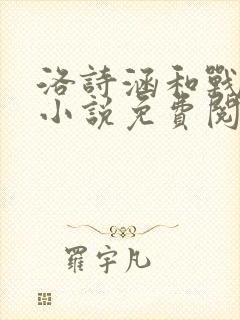 洛詩涵和戰
小說免費閱
羅宇凡